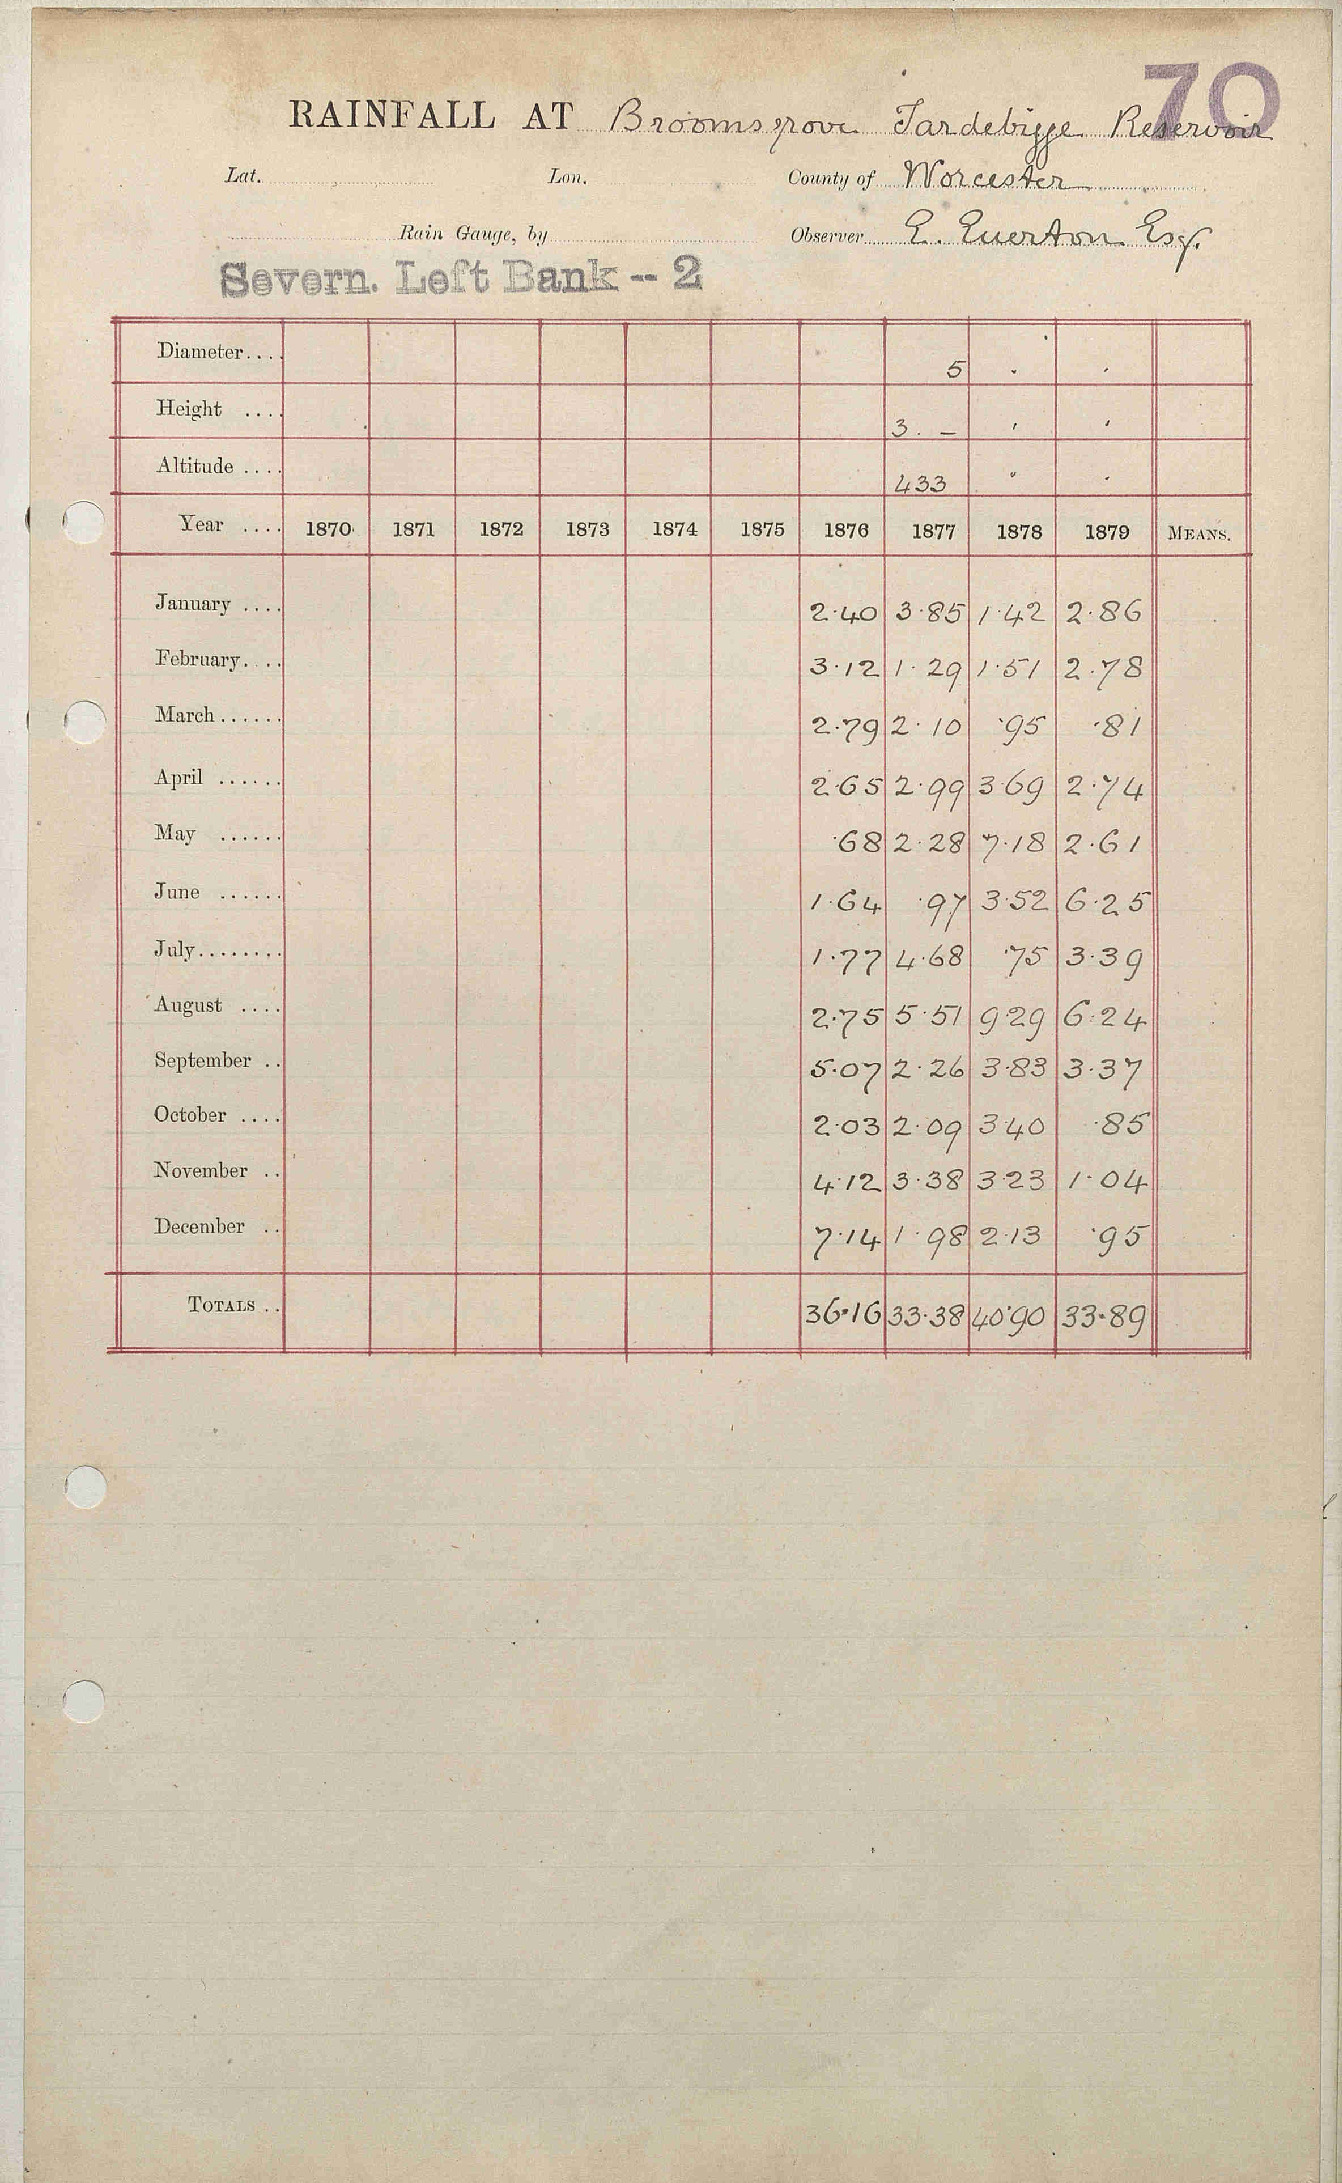 70
RAINFALL AT Bromsgrove Tardebigge Reservoir
Lat. Lon. County of Worcester
Rain Gauge, by Observer E. Everton Esq.
Severn. Left Bank -- 2
Diameter.... 5 " "
Height .... 3. – " "
Altitude .... 433 " "
Year .... 1870 1871 1872 1873 1874 1875 1876 1877 1878 1879 MEANS.
January .... 2.40 3.85 1.42 2.86
February.... 3.12 1.29 1.51 2.78
March...... 2.79 2.10 .95 .81
April ...... 2.65 2.99 3.69 2.74
May ...... .68 2.28 7.18 2.61
June ...... 1.64 .97 3.52 6.25
July........ 1.77 4.68 .75 3.39
August .... 2.75 5.51 9.29 6.24
September .. 5.07 2.26 3.83 3.37
October .... 2.03 2.09 3.40 .85
November .. 4.12 3.38 3.23 1.04
December .. 7.14 1.98 2.13 .95
TOTALS .. 36.16 33.38 40.90 33.89